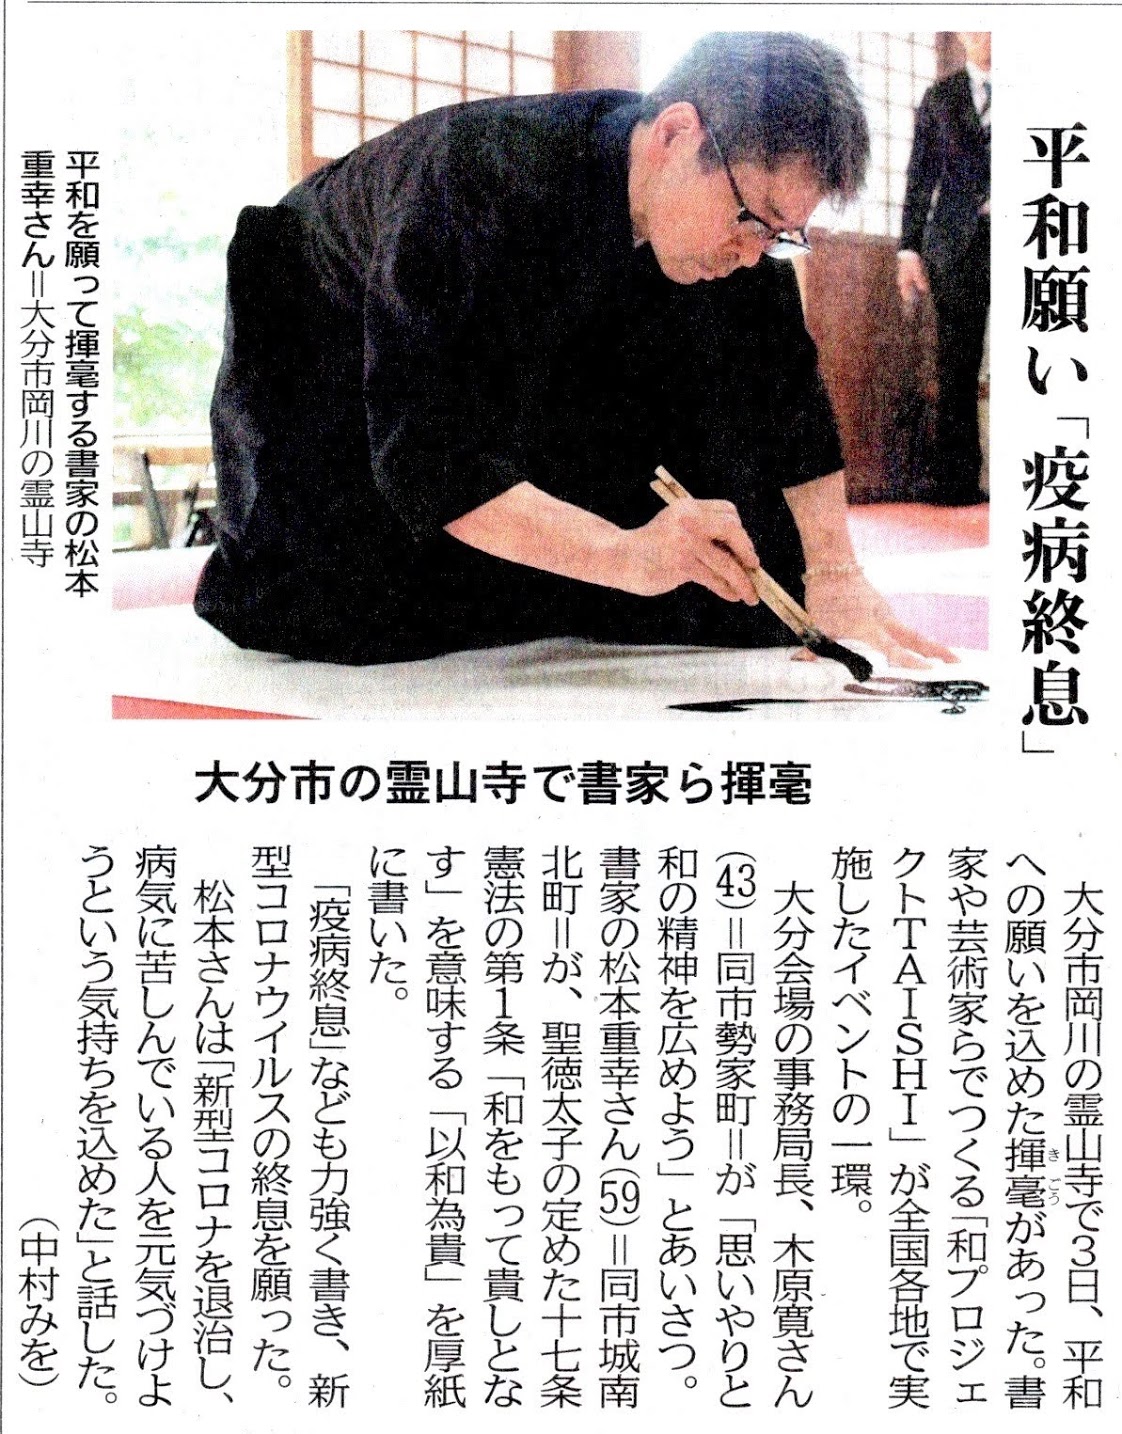 平和願い「疫病終息」
大分市の霊山寺で書家ら揮毫
平和を願って揮毫する書家の松本
重幸さん＝大分市岡川の霊山寺
大分市岡川の霊山寺で３日、平和
への願いを込めた揮毫があった。書
きごう
家や芸術家らでつくる「和プロジェ
クトＴＡＩＳＨＩ」が全国各地で実
施したイベントの一環。
大分会場の事務局長、木原寛さん
(43)＝同市勢家町＝が「思いやりと
和の精神を広めよう」とあいさつ。
書家の松本重幸さん(59)＝同市城南
北町＝が、聖徳太子の定めた十七条
憲法の第１条「和をもって貴しとな
す」を意味する「以和為貴」を厚紙
に書いた。
「疫病終息」なども力強く書き、新
型コロナウイルスの終息を願った。
松本さんは「新型コロナを退治し、
病気に苦しんでいる人を元気づけよ
うという気持ちを込めた」と話した。
（中村みを）